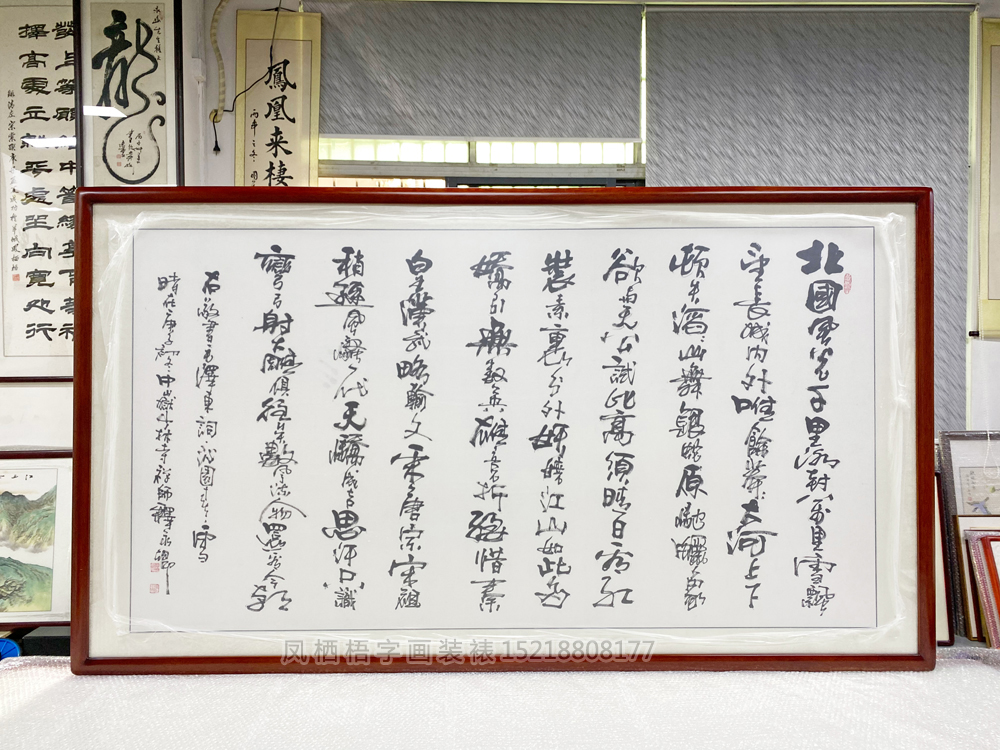 北國風光千里冰封萬里雪飄
望長城内外唯餘莽莽大河上下
頓失滔滔山舞銀蛇原馳蠟象
欲與天公試比高須晴日看紅
裝素裹分外妖嬈江山如此多
嬌引無數英雄競折腰惜秦
皇漢武略輸文采唐宗宋祖
稍遜風騷一代天驕成吉思汗只識
彎弓射大雕俱往矣數風流人物還看今朝
右敬書毛澤東詞沁園春雪
時在庚子初冬中嶽少林寺禪師釋永
鳳凰来棲
丙申之冬
龍
擇高處立就平處坐向寬處行
凤栖梧字画装裱15218808177